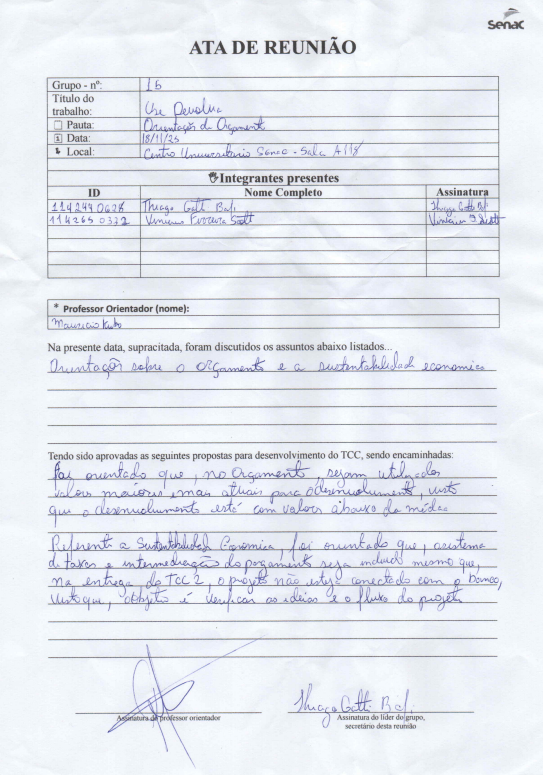 Senac
ATA DE REUNIÃO
Grupo - nº: 16
Título do
trabalho: Use Devolva
Pauta: Orientação do Orçamento
Data: 18/11/25
Local: Centro Universitário Senac - Sala A118
Integrantes presentes
ID Nome Completo Assinatura
Thiago Gatti Thiago Gatti
1142650332 Vinicius Vinicius
* Professor Orientador (nome):
Mauricio
Na presente data, supracitada, foram discutidos os assuntos abaixo listados...
Orientação sobre o orçamento e a sustentabilidade economica
Tendo sido aprovadas as seguintes propostas para desenvolvimento do TCC, sendo encaminhadas:
Foi orientado que, no Orçamento, sejam utilizados
valores maiores e mais atuais para o desenvolvimento, visto
que o desenvolvimento está com valores abaixo da média
Referente a Sustentabilidade Economica, foi orientado que, o sistema
de taxas e intermediação do pagamento seja incluido mesmo que,
na entrega do TCC2, o projeto não esteja conectado com o banco,
visto que, objeto é verificar as ideias e o fluxo do projeto
Thiago Gatti
Assinatura do professor orientador Assinatura do líder do grupo,
secretário desta reunião